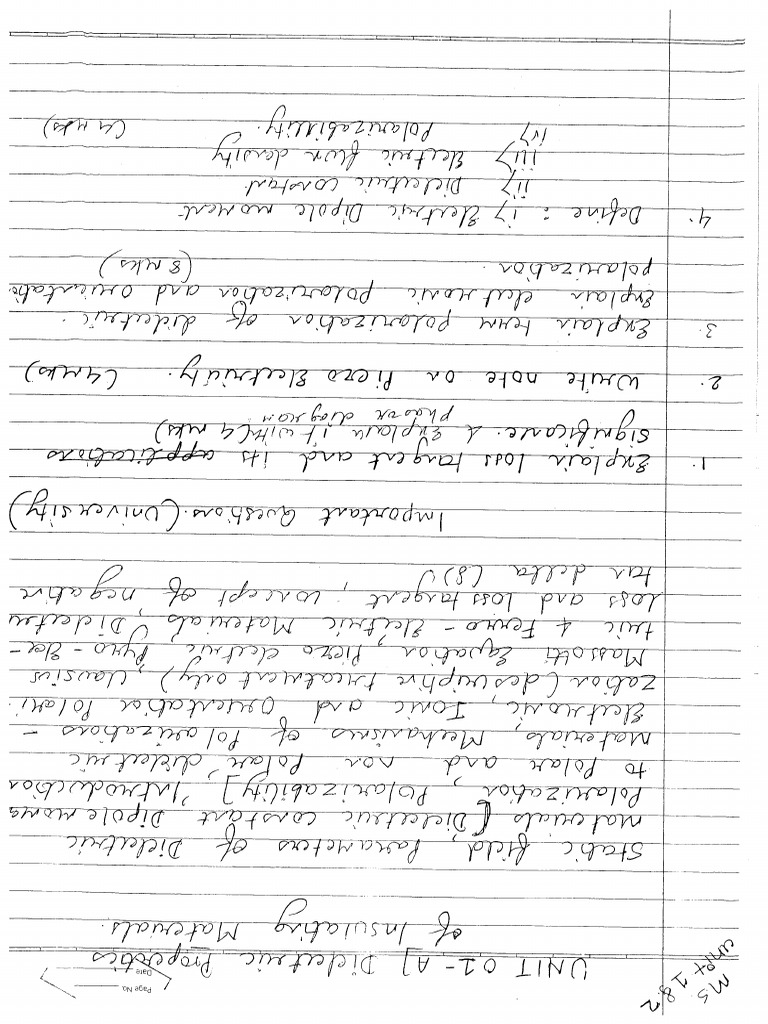 MS
unit 1 & 2
Page No.
Date
UNIT 01 - A] Dielectric Properties
of Insulating Materials.
Static field, Parameters of Dielectric
materials [Dielectric constant Dipole moms
Polarization, Polarizability] Introduction
to Polar and non Polar dielectric
materials, Mechanisms of Polarizations -
Electronic, Ionic and Orientation Polari
zation (descriptive treatment only), Clausius
Massotti Equation, Piezo electric, Pyro-Elec-
tric & Ferro-Electric Materials, Dielectru
loss and loss tangent, concept of negative
tan delta (δ)
Important Questions. (University)
1. Explain loss tangent and its applications
significance. & explain it with (4 mks)
phasor diagram
2. Write note on Piezo Electricity. (4 mks)
3. Explain term polarization of dielectric.
Explain electronic polarization and orientatio
polarization. (8 mks)
4. Define : i> Electric Dipole moment
ii> Dielectric constant
iii> Electric flux density
iv> Polarizability. (4 mks)